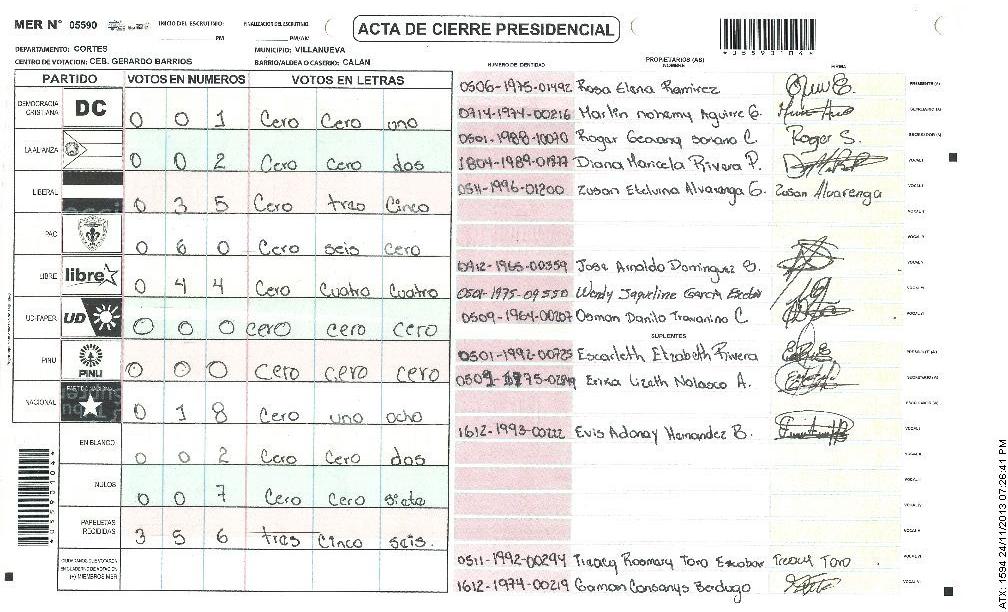 MER N° 05590
INICIO DEL ESCRUTINIO: PM
FINALIZACION DEL ESCRUTINIO: PM/AM
ACTA DE CIERRE PRESIDENCIAL
DEPARTAMENTO: CORTES
MUNICIPIO: VILLANUEVA
CENTRO DE VOTACION: CEB. GERARDO BARRIOS
BARRIO/ALDEA O CASERIO: CALAN
PARTIDO VOTOS EN NUMEROS VOTOS EN LETRAS
DEMOCRACIA CRISTIANA DC 0 0 1 Cero Cero uno
LA ALIANZA 0 0 2 Cero Cero dos
LIBERAL 0 3 5 Cero tres Cinco
PAC 0 6 0 Cero seis cero
LIBRE libre 0 4 4 Cero Cuatro Cuatro
UD-FAPER UD 0 0 0 cero cero cero
PINU PINU 0 0 0 cero cero cero
NACIONAL 0 1 8 Cero uno ocho
EN BLANCO 0 0 2 Cero Cero dos
NULOS 0 0 7 Cero Cero siete
PAPELETAS RECIBIDAS 3 5 6 tres Cinco seis
CIUDADANOS QUE VOTARON
EN CUADERNO DE VOTACION
(+) MIEMBROS MER
NUMERO DE IDENTIDAD
PROPIETARIOS (AS)
NOMBRE
FIRMA
0506-1975-01492 Rosa Elena Ramirez
0714-1974-00216 Marlin nohemy Aguire G.
0501-1988-10070 Roger Soriano C. Roger S.
1804-1989-01977 Diana Maricela Rivera P.
0511-1996-01200 Zusan Etelvina Alvarenga G. Zusan Alvarenga
0412-1965-00359 Jose Arnaldo Dominguez B.
0501-1975-09550 Wendy Jaqueline Garcia
0509-1964-00207 Osman Danilo C.
SUPLENTES
0501-1992-00725 Escarleth Elizabeth Rivera
Erika Lizeth Nolasco A.
1612-1993-00222 Evis Adonay Hernandez B.
0511-1992-00294 Rosmary Toro Escobar Toro
1612-1974-00219 Berdugo
ATX: 1594 24/11/2013 07:26:41 PM